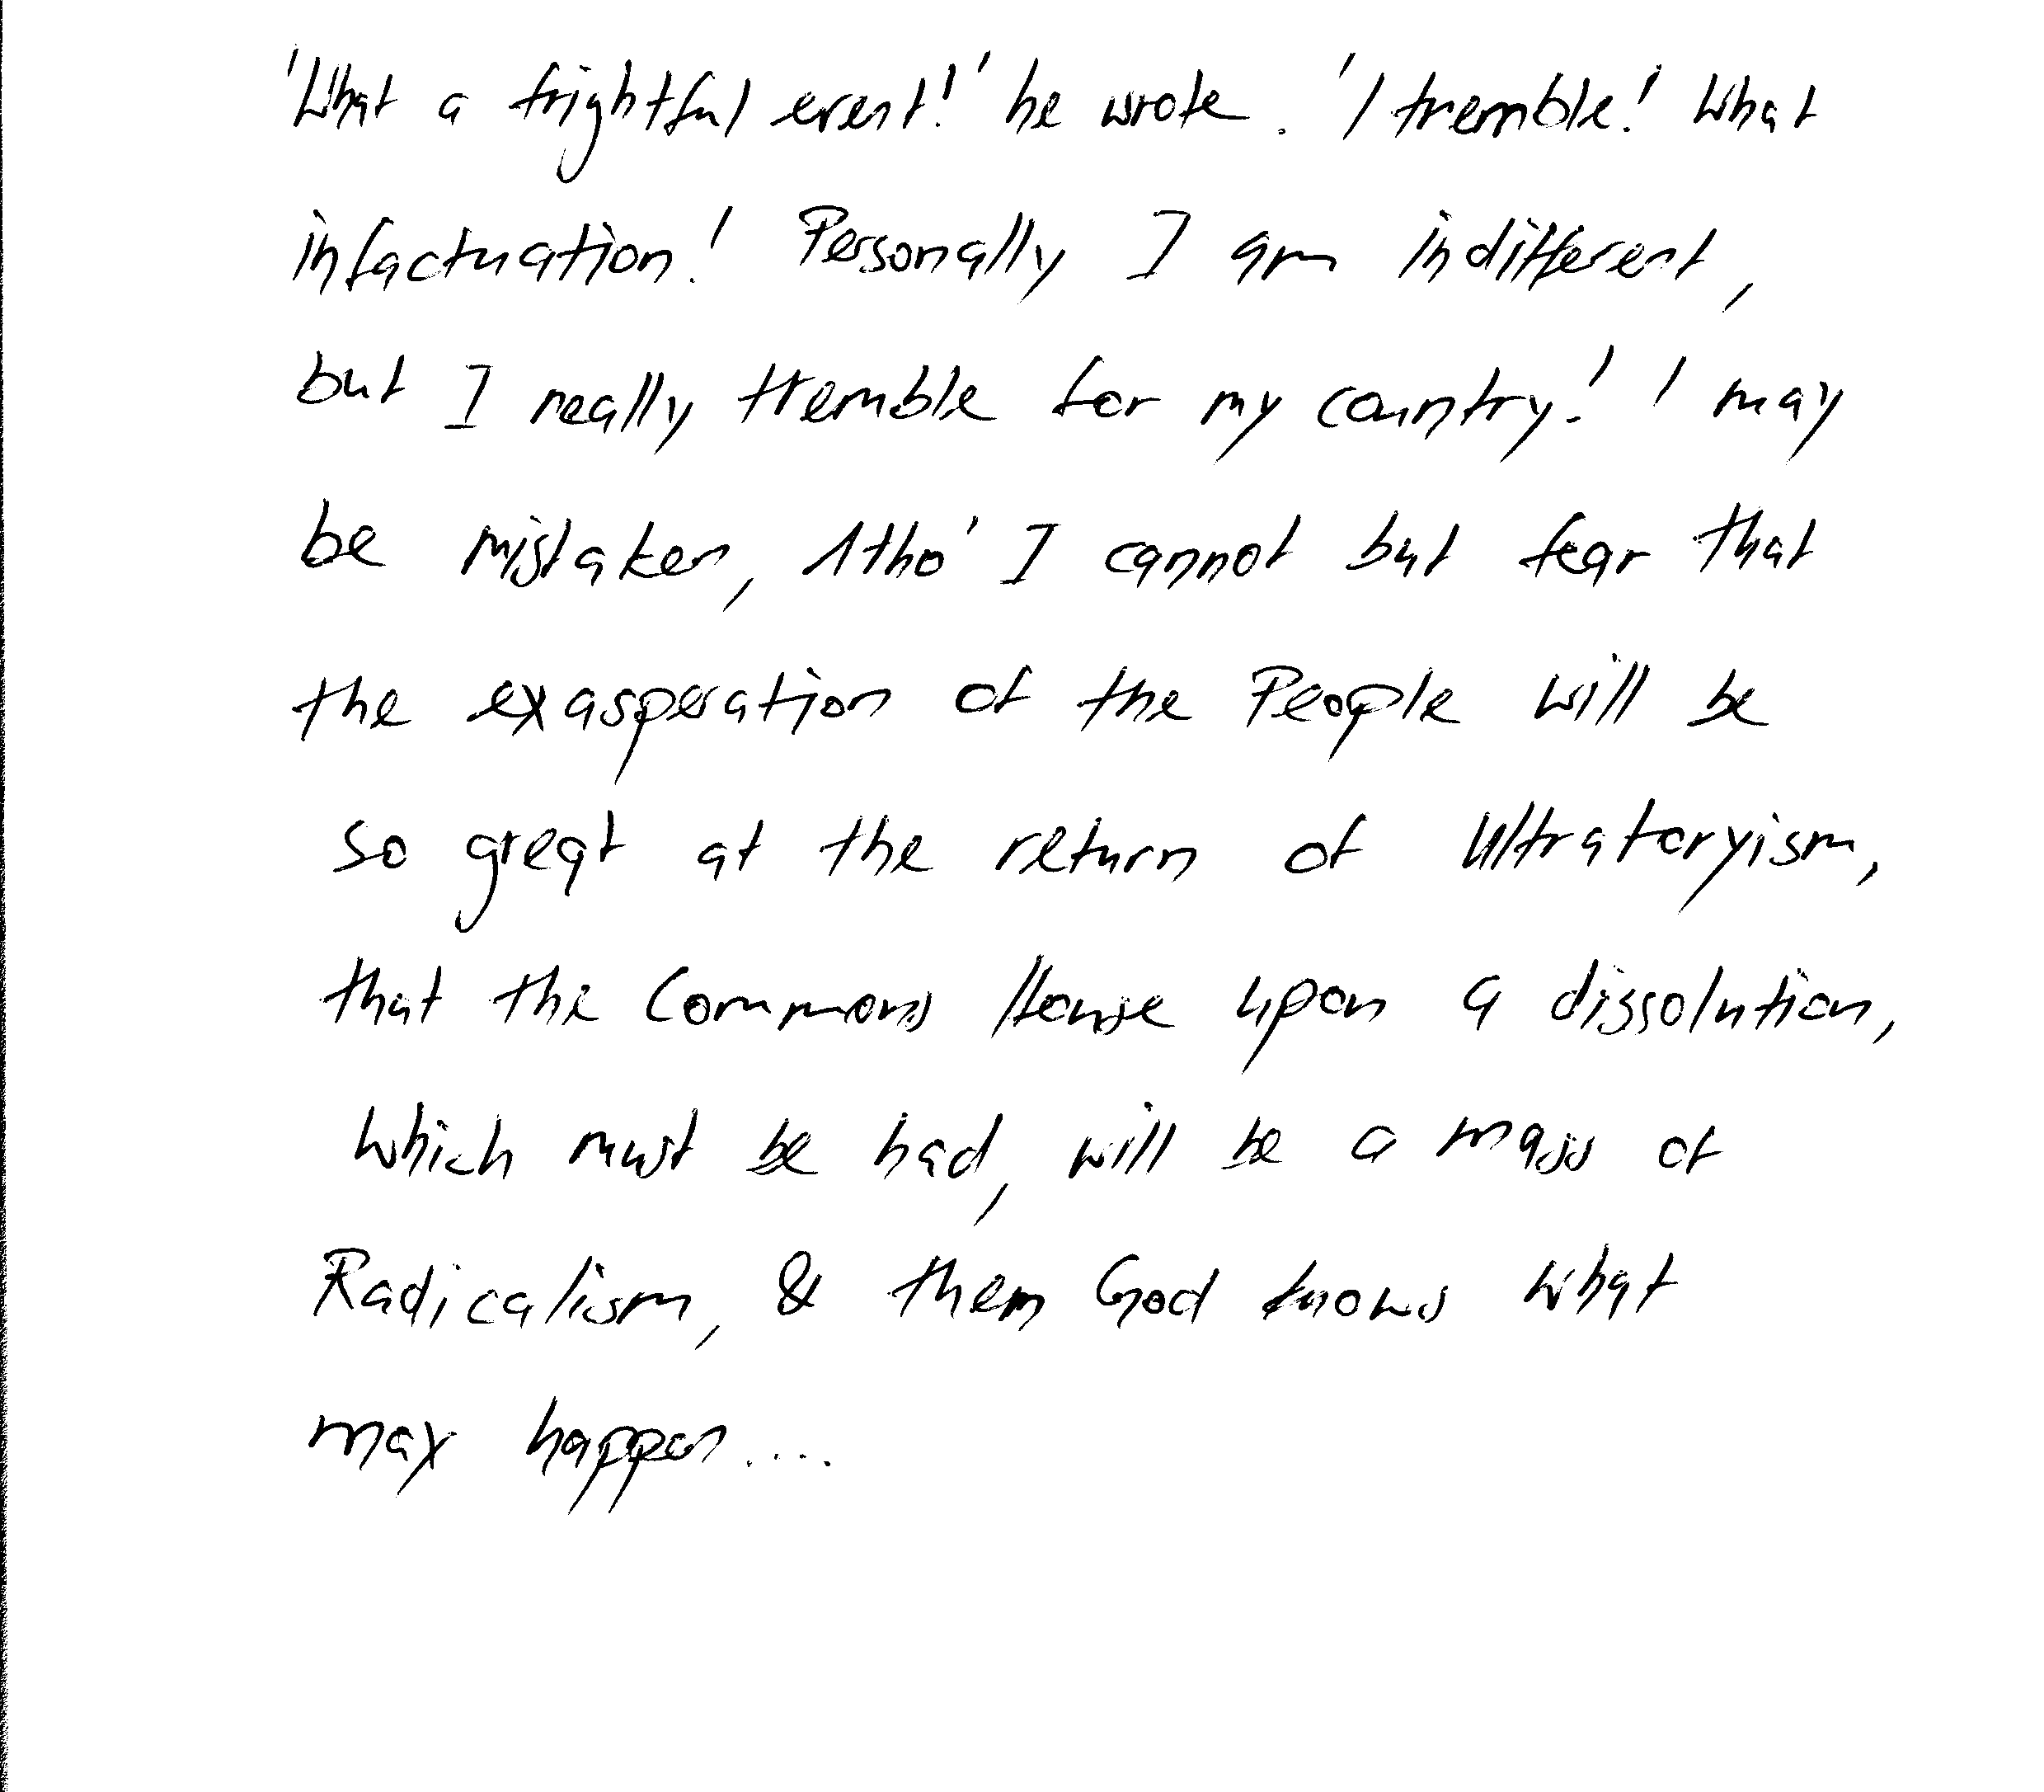 'What a frightful event!' he wrote. 'I tremble! What
infactuation! Personally I am indifferent,
but I really tremble for my country! I may
be mistaken, Altho' I cannot but fear that
the exasperation of the People will be
so great at the return of Ultratoryism,
that the Commons House upon a dissolution,
which must be had, will be a mass of
Radicalism, & them God knows what
may happen....